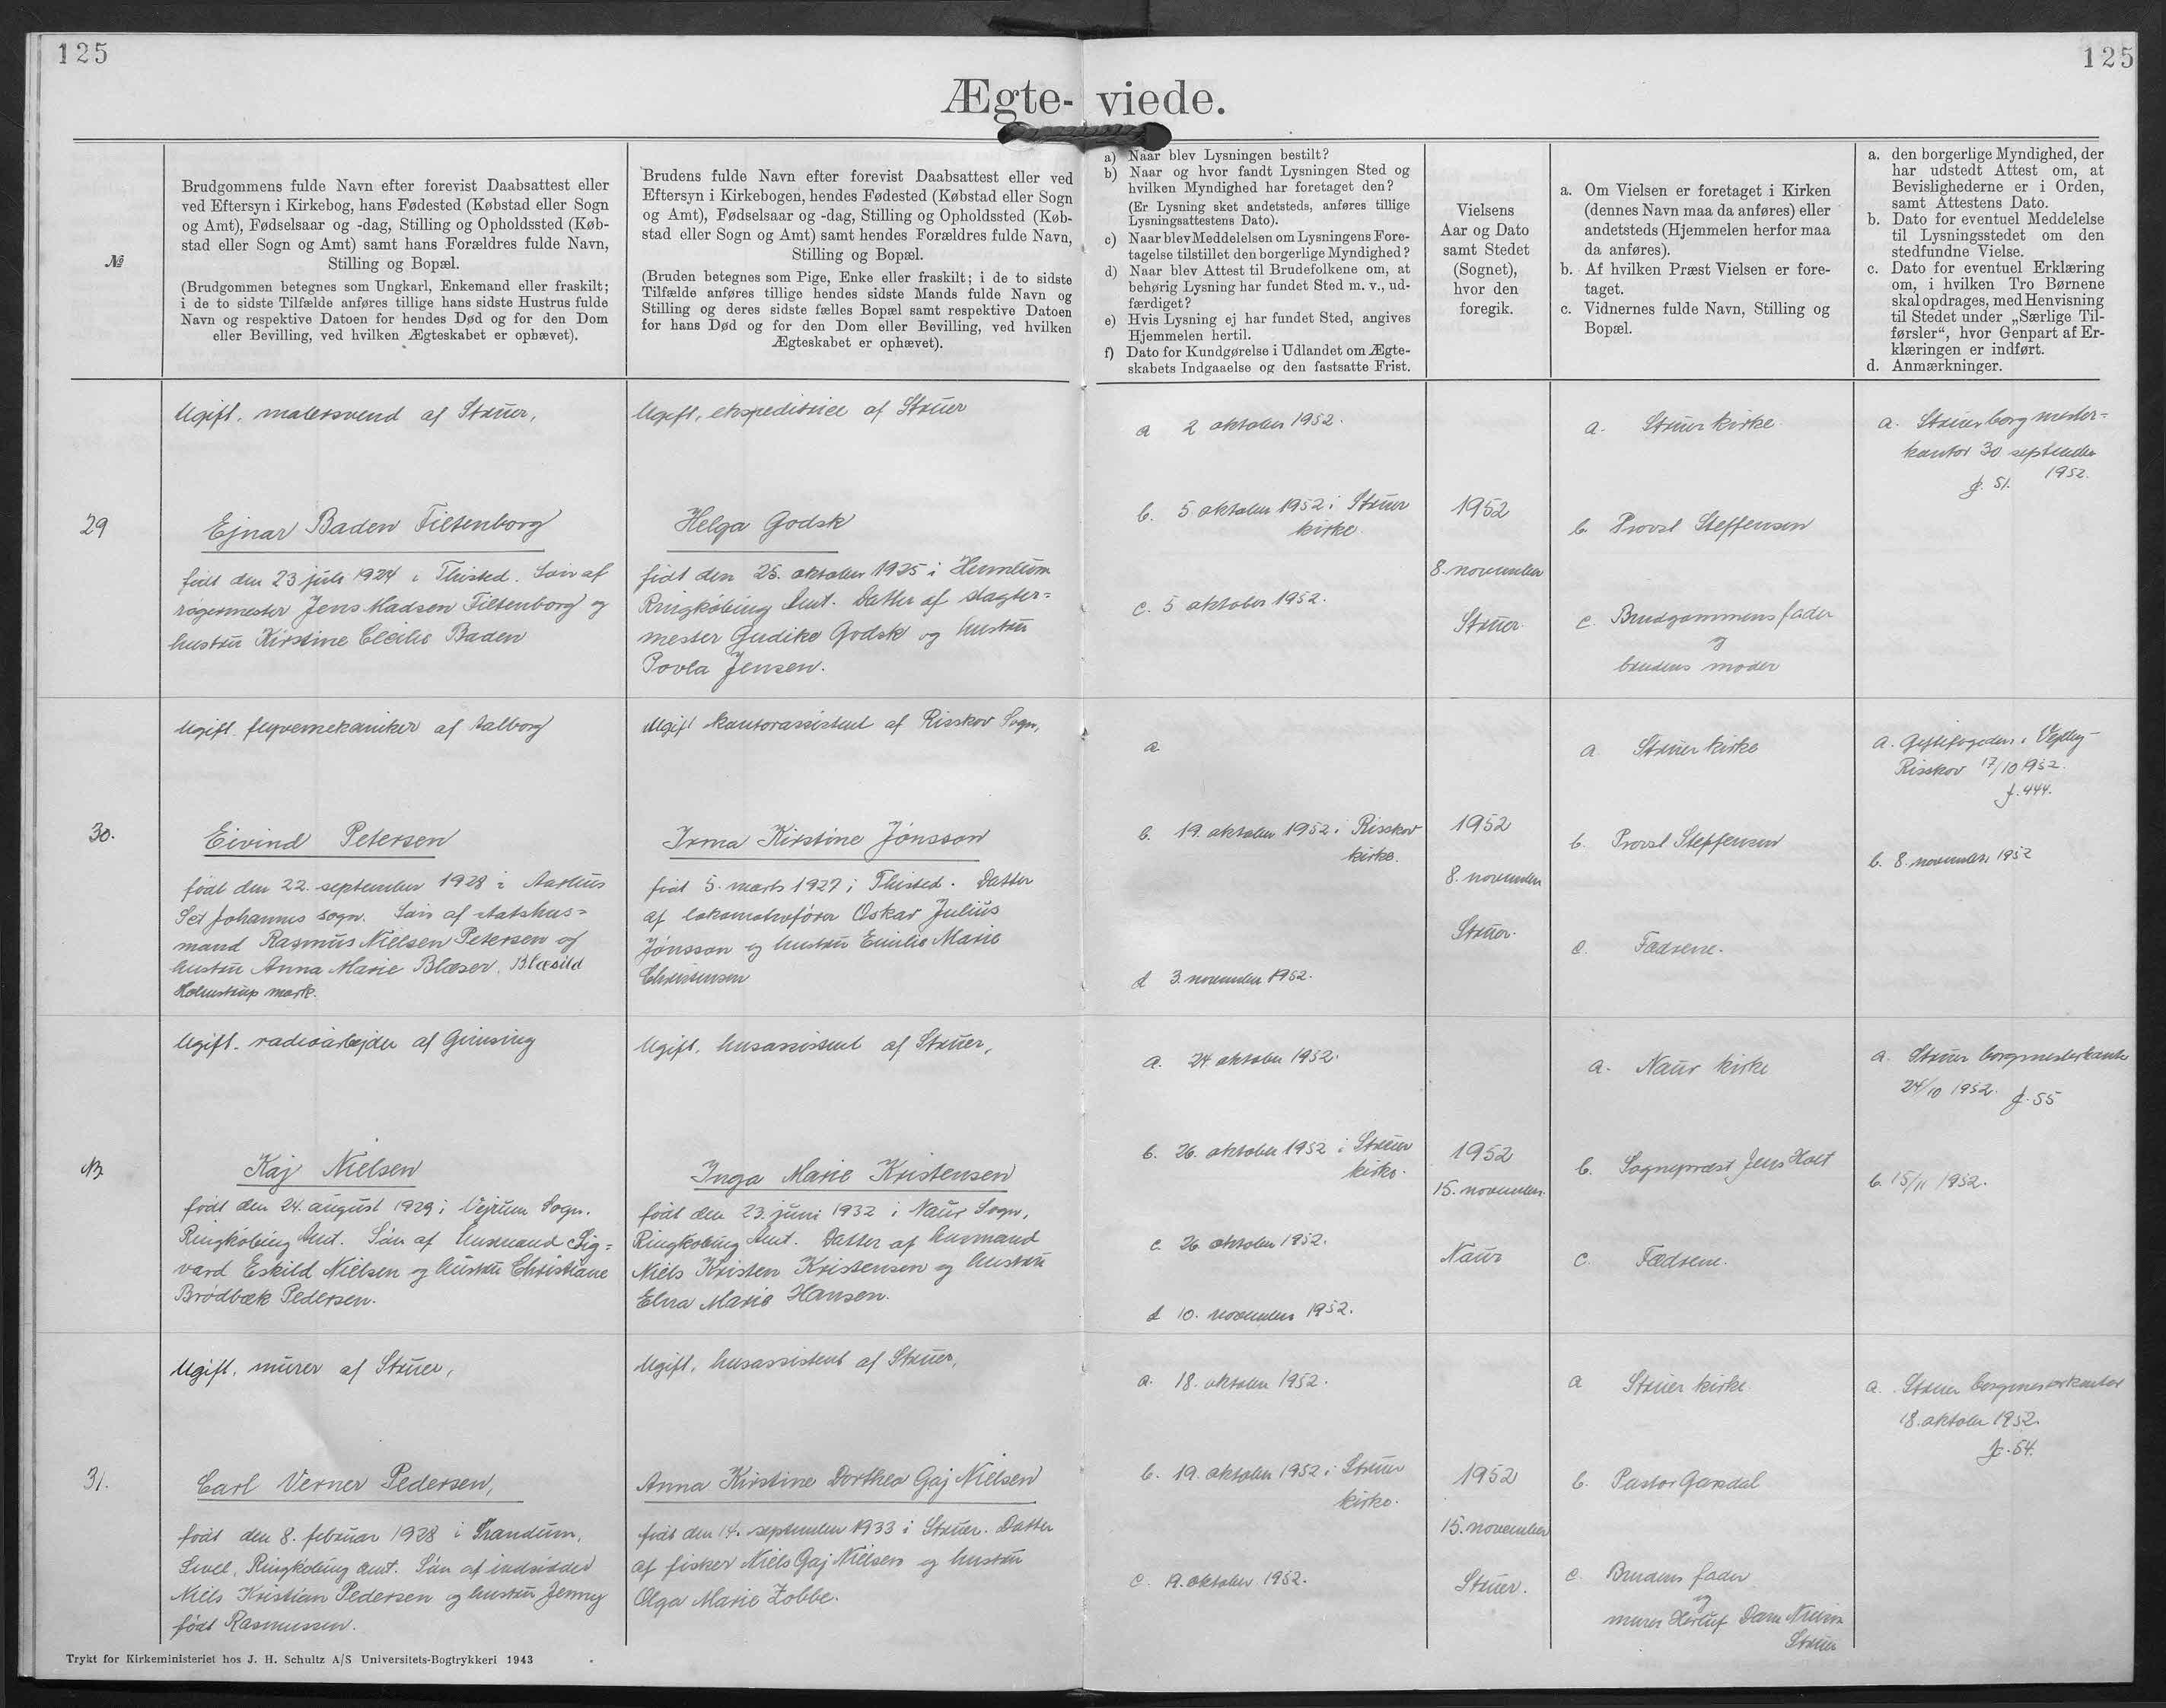 125
125
Ægte- viede.
№
Brudgommens fulde Navn efter forevist Daabsattest eller
ved Eftersyn i Kirkebog, hans Fødested (Købstad eller Sogn
og Amt), Fødselsaar og -dag, Stilling og Opholdssted (Køb-
stad eller Sogn og Amt) samt hans Forældres fulde Navn,
Stilling og Bopæl.
(Brudgommen betegnes som Ungkarl, Enkemand eller fraskilt;
i de to sidste Tilfælde anføres tillige hans sidste Hustrus fulde
Navn og respektive Datoen for hendes Død og for den Dom
eller Bevilling, ved hvilken Ægteskabet er ophævet).
Brudens fulde Navn efter forevist Daabsattest eller ved
Eftersyn i Kirkebogen, hendes Fødested (Købstad eller Sogn
og Amt), Fødselsaar og -dag, Stilling og Opholdssted (Køb-
stad eller Sogn og Amt) samt hendes Forældres fulde Navn,
Stilling og Bopæl.
(Bruden betegnes som Pige, Enke eller fraskilt; i de to sidste
Tilfælde anføres tillige hendes sidste Mands fulde Navn og
Stilling og deres sidste fælles Bopæl samt respektive Datoen
for hans Død og for den Dom eller Bevilling, ved hvilken
Ægteskabet er ophævet).
a) Naar blev Lysningen bestilt?
b) Naar og hvor fandt Lysningen Sted og
hvilken Myndighed har foretaget den?
(Er Lysning sket andetsteds, anføres tillige
Lysningsattestens Dato).
c) Naar blev Meddelelsen om Lysningens Fore-
tagelse tilstillet den borgerlige Myndighed?
d) Naar blev Attest til Brudefolkene om, at
behørig Lysning har fundet Sted m. v., ud-
færdiget?
e) Hvis Lysning ej har fundet Sted, angives
Hjemmelen hertil.
f) Dato for Kundgørelse i Udlandet om Ægte-
skabets Indgaaelse og den fastsatte Frist.
Vielsens
Aar og Dato
samt Stedet
(Sognet),
hvor den
foregik.
a. Om Vielsen er foretaget i Kirken
(dennes Navn maa da anføres) eller
andetsteds (Hjemmelen herfor maa
da anføres).
b. Af hvilken Præst Vielsen er fore-
taget.
c. Vidnernes fulde Navn, Stilling og
Bopæl.
a. den borgerlige Myndighed, der
har udstedt Attest om, at
Bevislighederne er i Orden,
samt Attestens Dato.
b. Dato for eventuel Meddelelse
til Lysningsstedet om den
stedfundne Vielse.
c. Dato for eventuel Erklæring
om, i hvilken Tro Børnene
skal opdrages, med Henvisning
til Stedet under „Særlige Til-
førsler“, hvor Genpart af Er-
klæringen er indført.
d. Anmærkninger.
29
Ugift, malersvend af Struer,
Ejnar Baden Tiltenborg
født den 23 juli 1924 i Thisted. Søn af
røgemester Jens Madsen Tiltenborg og
hustru Kirstine Cecilie Baden
Ugift, ekspeditrice af Struer
Helga Godsk
født den 25. oktober 1925 i
Ringkøbing Amt. Datter af slagter=
mester Gudike Godsk og hustru
Povla Jensen.
a 2 oktober 1952.
b. 5 oktober 1952 i Struer
kirke.
c. 5 oktober 1952.
1952
8. november
Struer
a. Struer kirke
b. Provst Steffensen
c. Brudgommens fader
og
brudens moder
a. Struer borgmester=
kontor 30 september
1952.
J. 51.
30.
Ugift flyvemekaniker af Aalborg
Eivind Petersen
født den 22. september 1928 i Aarhus
Sct Johannes sogn. Søn af statshus=
mand Rasmus Nielsen Petersen og
hustru Anna Marie Blæser. Blæsild
Holmstrup mark.
Ugift kontorassistent af Risskov Sogn,
Irma Kirstine Jónsson
født 5. marts 1927 i Thisted. Datter
af lokomotivfører Oskar Julius
Jónsson og hustru Emilie Marie
Christensen
a
b. 19. oktober 1952 i Risskov
kirke.
d 3. november 1952.
1952
8. november
Struer.
a Struer kirke
b. Provst Steffensen
c. Fædrene.
a. Giftefogeden i Vejlby-
Risskov 17/10 1952.
J. 444.
b. 8. november 1952
Ugift. radioarbejder af Gimsing
Kaj Nielsen
født den 24. august 1929 i Vejrum Sogn.
Ringkøbing Amt. Søn af husmand Sig=
vard Eskild Nielsen og hustru Christiane
Brødbæk Pedersen.
Ugift, husassistent af Struer,
Inga Marie Kristensen
født den 23. juni 1932 i Naur Sogn,
Ringkøbing Amt. Datter af husmand
Niels Kristen Kristensen og hustru
Elna Marie Hansen.
a. 24 oktober 1952.
b. 26. oktober 1952 i Struer
kirke.
c. 26 oktober 1952.
d 10. november 1952.
1952
15. november.
Naur
a. Naur kirke
b. Sognepræst Jens Holt
c Fædrene.
a. Struer borgmesterkontor
24/10 1952. J. 55
b. 15/11 1952.
31.
Ugift, murer af Struer,
Carl Verner Pedersen,
født den 8. februar 1928 i Trandum,
Sevel, Ringkøbing amt. Søn af indsidder
Niels Kristian Pedersen og hustru Jenny
født Rasmussen.
Ugift, husassistent af Struer,
Anna Kirstine Dorthea Gaj Nielsen
født den 14. september 1933 i Struer. Datter
af fisker Niels Gaj Nielsen og hustru
Olga Marie Zobbe.
a. 18. oktober 1952.
b. 19. oktober 1952 i Struer
kirke.
c. 19. oktober 1952.
1952
15. november
Struer.
a Struer kirke.
b. Pastor Garsdal
c. Brudens fader
og
murer Herluf Dam Nielsen
Struer
a. Struer borgmesterkontor
18. oktober 1952.
J. 54.
Trykt for Kirkeministeriet hos J. H. Schultz A/S Universitets-Bogtrykkeri 1943